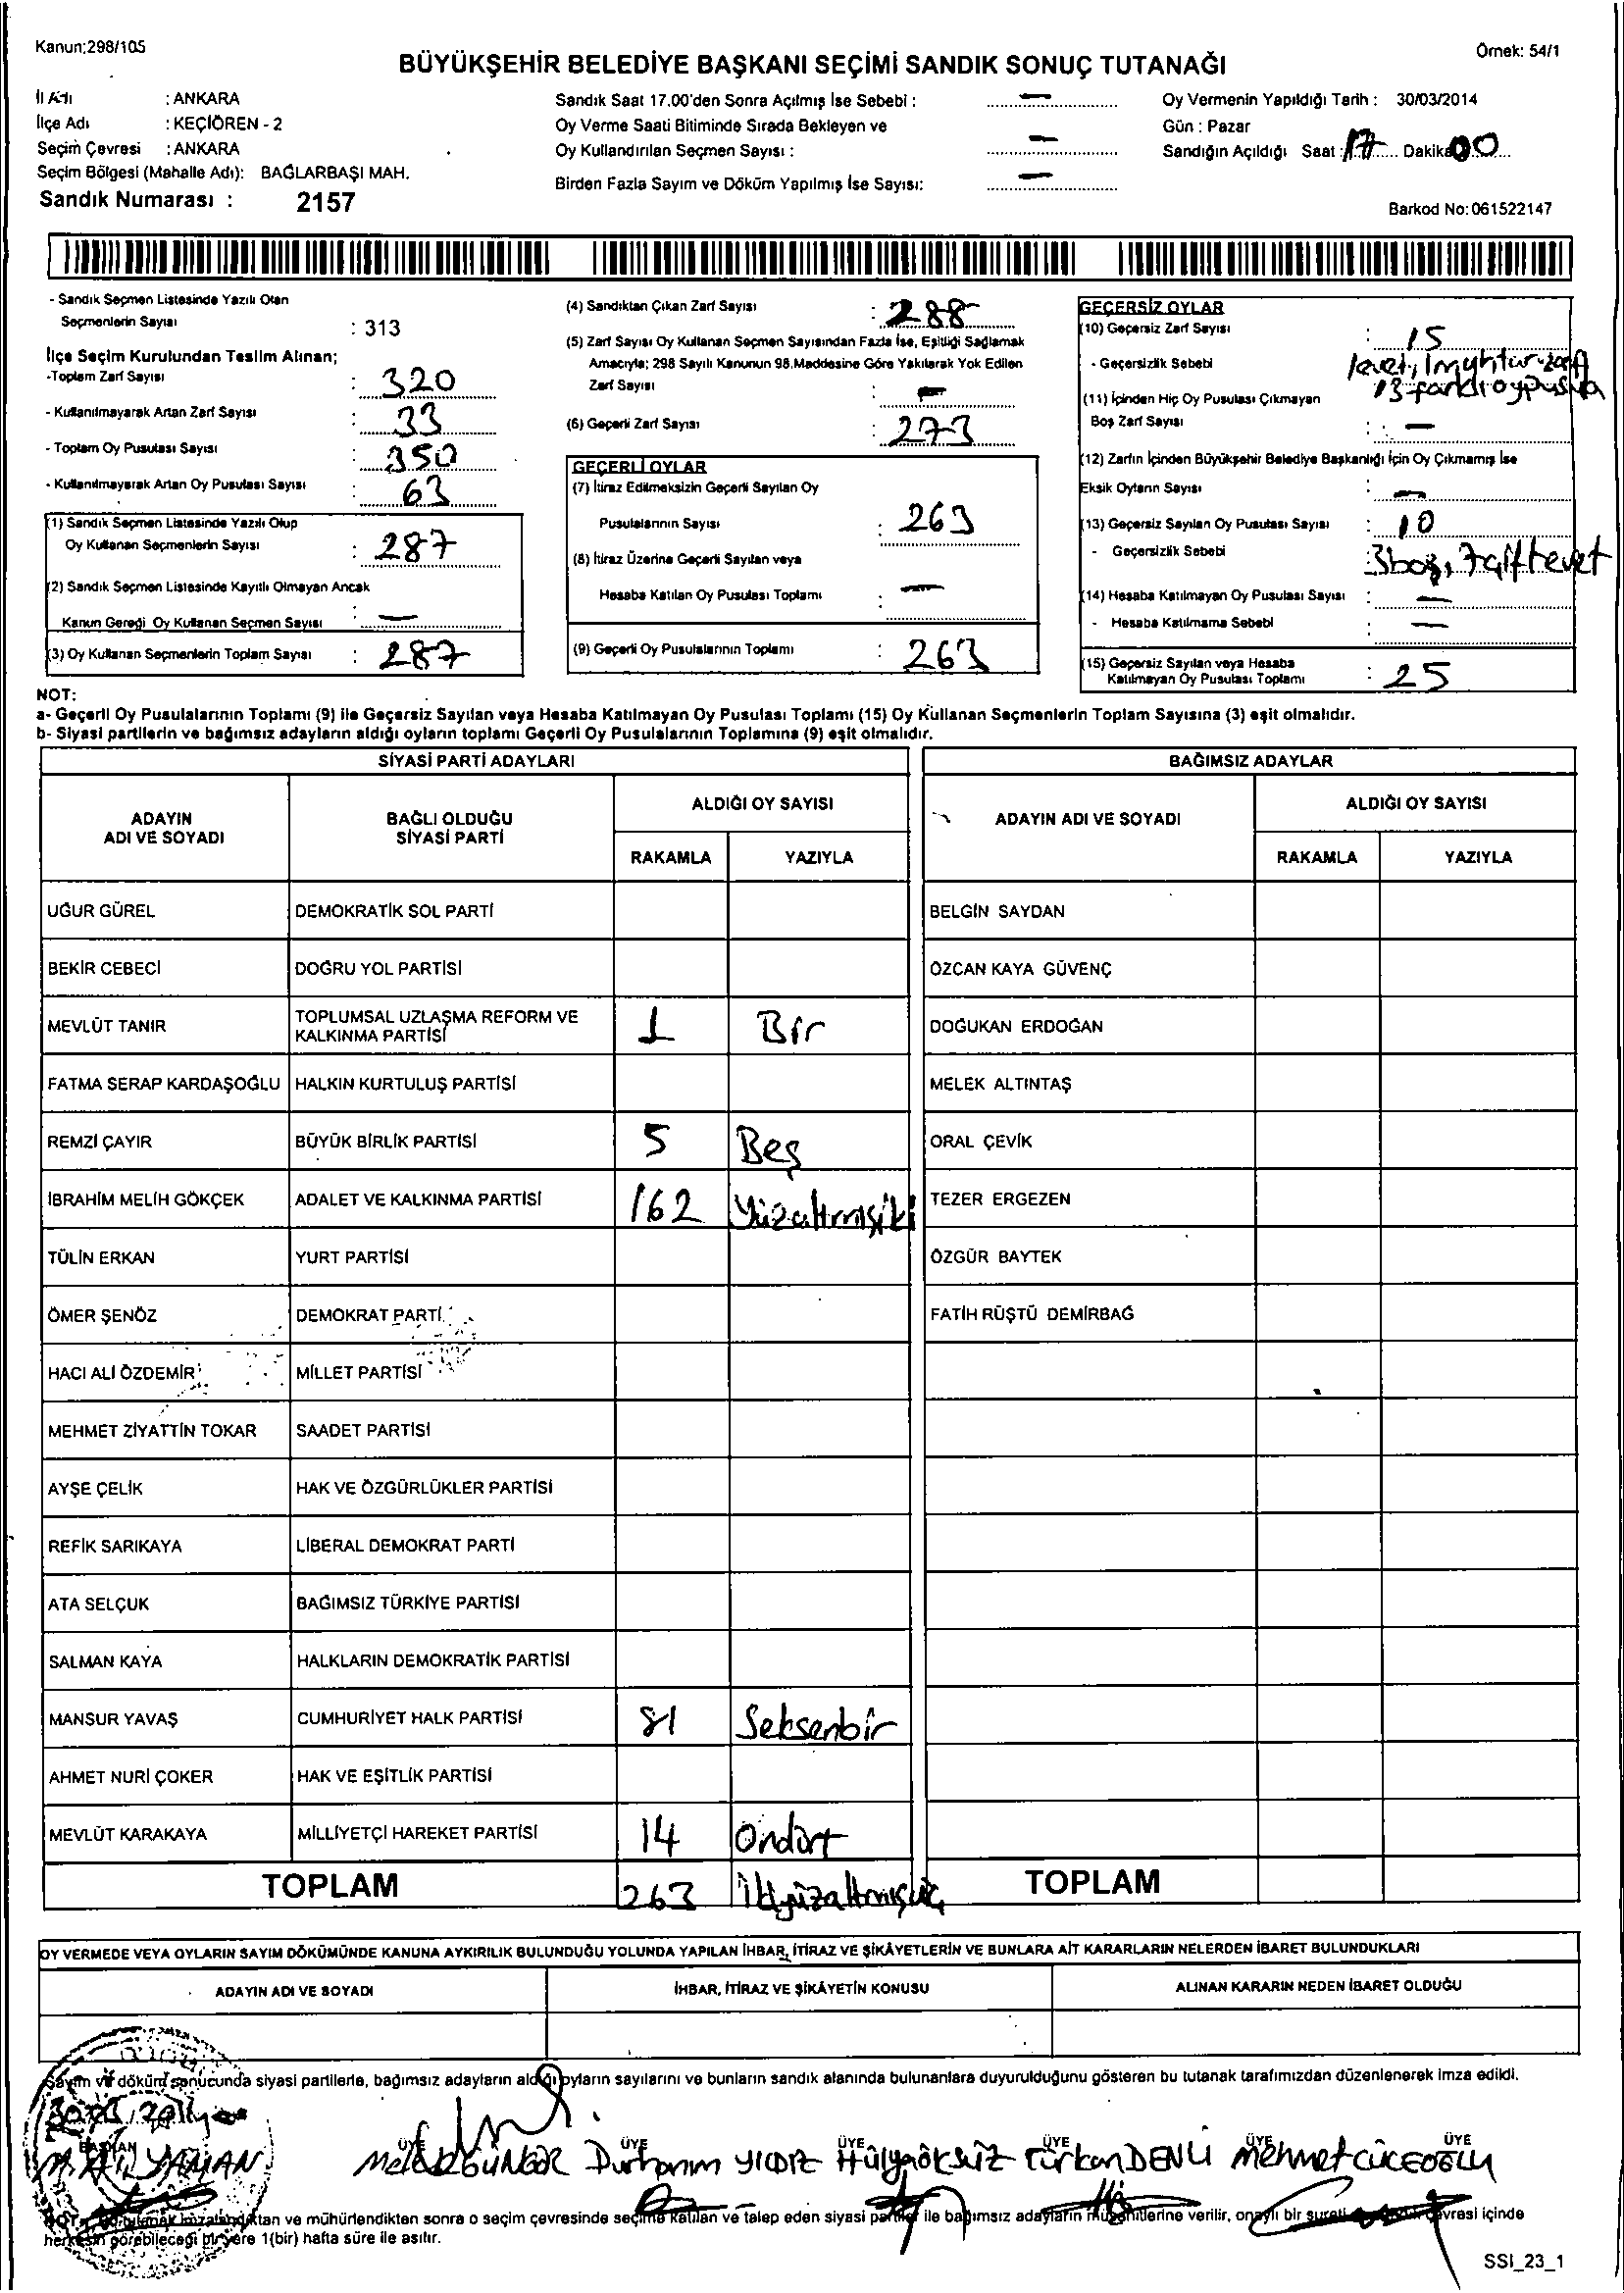 Kanun:298/105
Örnek: 54/1
BÜYÜKŞEHİR BELEDİYE BAŞKANI SEÇİMİ SANDIK SONUÇ TUTANAĞI
İl Adı : ANKARA
İlçe Adı : KEÇİÖREN - 2
Seçim Çevresi : ANKARA
Seçim Bölgesi (Mahalle Adı): BAĞLARBAŞI MAH.
Sandık Numarası : 2157
Sandık Saat 17.00'den Sonra Açılmış İse Sebebi : —
Oy Verme Saati Bitiminde Sırada Bekleyen ve
Oy Kullandırılan Seçmen Sayısı : —
Birden Fazla Sayım ve Döküm Yapılmış İse Sayısı: —
Oy Vermenin Yapıldığı Tarih : 30/03/2014
Gün : Pazar
Sandığın Açıldığı Saat : 17 Dakika 00
Barkod No:061522147
- Sandık Seçmen Listesinde Yazılı Olan
Seçmenlerin Sayısı : 313
İlçe Seçim Kurulundan Teslim Alınan;
-Toplam Zarf Sayısı : 320
- Kullanılmayarak Artan Zarf Sayısı : 33
- Toplam Oy Pusulası Sayısı : 350
- Kullanılmayarak Artan Oy Pusulası Sayısı : 63
(1) Sandık Seçmen Listesinde Yazılı Olup
Oy Kullanan Seçmenlerin Sayısı : 287
(2) Sandık Seçmen Listesinde Kayıtlı Olmayan Ancak
Kanun Gereği Oy Kullanan Seçmen Sayısı : —
(3) Oy Kullanan Seçmenlerin Toplam Sayısı : 287
(4) Sandıktan Çıkan Zarf Sayısı : 288
(5) Zarf Sayısı Oy Kullanan Seçmen Sayısından Fazla İse, Eşitliği Sağlamak
Amacıyla; 298 Sayılı Kanunun 98.Maddesine Göre Yakılarak Yok Edilen
Zarf Sayısı : —
(6) Geçerli Zarf Sayısı : 273
GEÇERLİ OYLAR
(7) İtiraz Edilmeksizin Geçerli Sayılan Oy
Pusulalarının Sayısı : 263
(8) İtiraz Üzerine Geçerli Sayılan veya
Hesaba Katılan Oy Pusulası Toplamı : —
(9) Geçerli Oy Pusulalarının Toplamı : 263
GEÇERSİZ OYLAR
(10) Geçersiz Zarf Sayısı : 15
- Geçersizlik Sebebi 1evet, 1muhtar zarfı
13 farklı oy pusula
(11) İçinden Hiç Oy Pusulası Çıkmayan
Boş Zarf Sayısı : —
(12) Zarfın İçinden Büyükşehir Belediye Başkanlığı İçin Oy Çıkmamış İse
Eksik Oyların Sayısı : —
(13) Geçersiz Sayılan Oy Pusulası Sayısı : 10
- Geçersizlik Sebebi : 3boş, 7çift evet
(14) Hesaba Katılmayan Oy Pusulası Sayısı : —
- Hesaba Katılmama Sebebi : —
(15) Geçersiz Sayılan veya Hesaba
Katılmayan Oy Pusulası Toplamı : 25
NOT:
a- Geçerli Oy Pusulalarının Toplamı (9) ile Geçersiz Sayılan veya Hesaba Katılmayan Oy Pusulası Toplamı (15) Oy Kullanan Seçmenlerin Toplam Sayısına (3) eşit olmalıdır.
b- Siyasi partilerin ve bağımsız adayların aldığı oyların toplamı Geçerli Oy Pusulalarının Toplamına (9) eşit olmalıdır.
SİYASİ PARTİ ADAYLARI
BAĞIMSIZ ADAYLAR
ADAYIN
ADI VE SOYADI
BAĞLI OLDUĞU
SİYASİ PARTİ
ALDIĞI OY SAYISI
RAKAMLA YAZIYLA
ADAYIN ADI VE SOYADI
ALDIĞI OY SAYISI
RAKAMLA YAZIYLA
UĞUR GÜREL DEMOKRATİK SOL PARTİ BELGİN SAYDAN
BEKİR CEBECİ DOĞRU YOL PARTİSİ ÖZCAN KAYA GÜVENÇ
MEVLÜT TANIR TOPLUMSAL UZLAŞMA REFORM VE
KALKINMA PARTİSİ 1 Bir DOĞUKAN ERDOĞAN
FATMA SERAP KARDAŞOĞLU HALKIN KURTULUŞ PARTİSİ MELEK ALTINTAŞ
REMZİ ÇAYIR BÜYÜK BİRLİK PARTİSİ 5 Beş ORAL ÇEVİK
İBRAHİM MELİH GÖKÇEK ADALET VE KALKINMA PARTİSİ 162 Yüzaltmışiki TEZER ERGEZEN
TÜLİN ERKAN YURT PARTİSİ ÖZGÜR BAYTEK
ÖMER ŞENÖZ DEMOKRAT PARTİ FATİH RÜŞTÜ DEMİRBAĞ
HACI ALİ ÖZDEMİR MİLLET PARTİSİ
MEHMET ZİYATTİN TOKAR SAADET PARTİSİ
AYŞE ÇELİK HAK VE ÖZGÜRLÜKLER PARTİSİ
REFİK SARIKAYA LİBERAL DEMOKRAT PARTİ
ATA SELÇUK BAĞIMSIZ TÜRKİYE PARTİSİ
SALMAN KAYA HALKLARIN DEMOKRATİK PARTİSİ
MANSUR YAVAŞ CUMHURİYET HALK PARTİSİ 81 Seksenbir
AHMET NURİ ÇOKER HAK VE EŞİTLİK PARTİSİ
MEVLÜT KARAKAYA MİLLİYETÇİ HAREKET PARTİSİ 14 Ondört
TOPLAM 263 İkiyüzaltmışüç TOPLAM
OY VERMEDE VEYA OYLARIN SAYIM DÖKÜMÜNDE KANUNA AYKIRILIK BULUNDUĞU YOLUNDA YAPILAN İHBAR, İTİRAZ VE ŞİKÂYETLERİN VE BUNLARA AİT KARARLARIN NELERDEN İBARET BULUNDUKLARI
ADAYIN ADI VE SOYADI İHBAR, İTİRAZ VE ŞİKÂYETİN KONUSU ALINAN KARARIN NEDEN İBARET OLDUĞU
Sayım ve döküm sonucunda siyasi partilerle, bağımsız adayların aldığı oyların sayılarını ve bunların sandık alanında bulunanlara duyurulduğunu gösteren bu tutanak tarafımızdan düzenlenerek imza edildi.
BAŞKAN ÜYE ÜYE ÜYE ÜYE ÜYE ÜYE
YAMAN GÜNGÖR YILDIZ Hülya Öksüz Türkan DENLİ Mehmet CÜCEOĞLU
NOT: Bu tutanak imzalandıktan ve mühürlendikten sonra o seçim çevresinde seçime katılan ve talep eden siyasi partiler ile bağımsız adayların müşahitlerine verilir, onaylı bir sureti çevresi içinde
herkesin görebileceği bir yere 1(bir) hafta süre ile asılır.
SSI_23_1